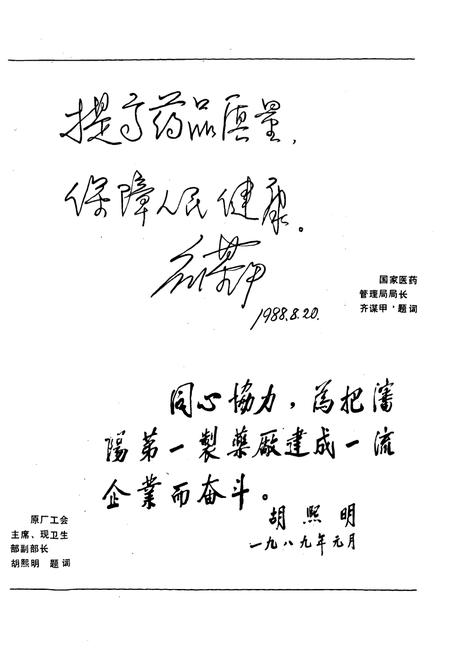 提高药品质量，
保障人民健康。
齐谋甲
1988.8.20.
国家医药
管理局局长
齐谋甲·题词
同心協力，為把瀋
陽第一製藥廠建成一流
企業而奋斗。
胡熙明
一九八九年元月
原厂工会
主席、现卫生
部副部长
胡熙明 题词